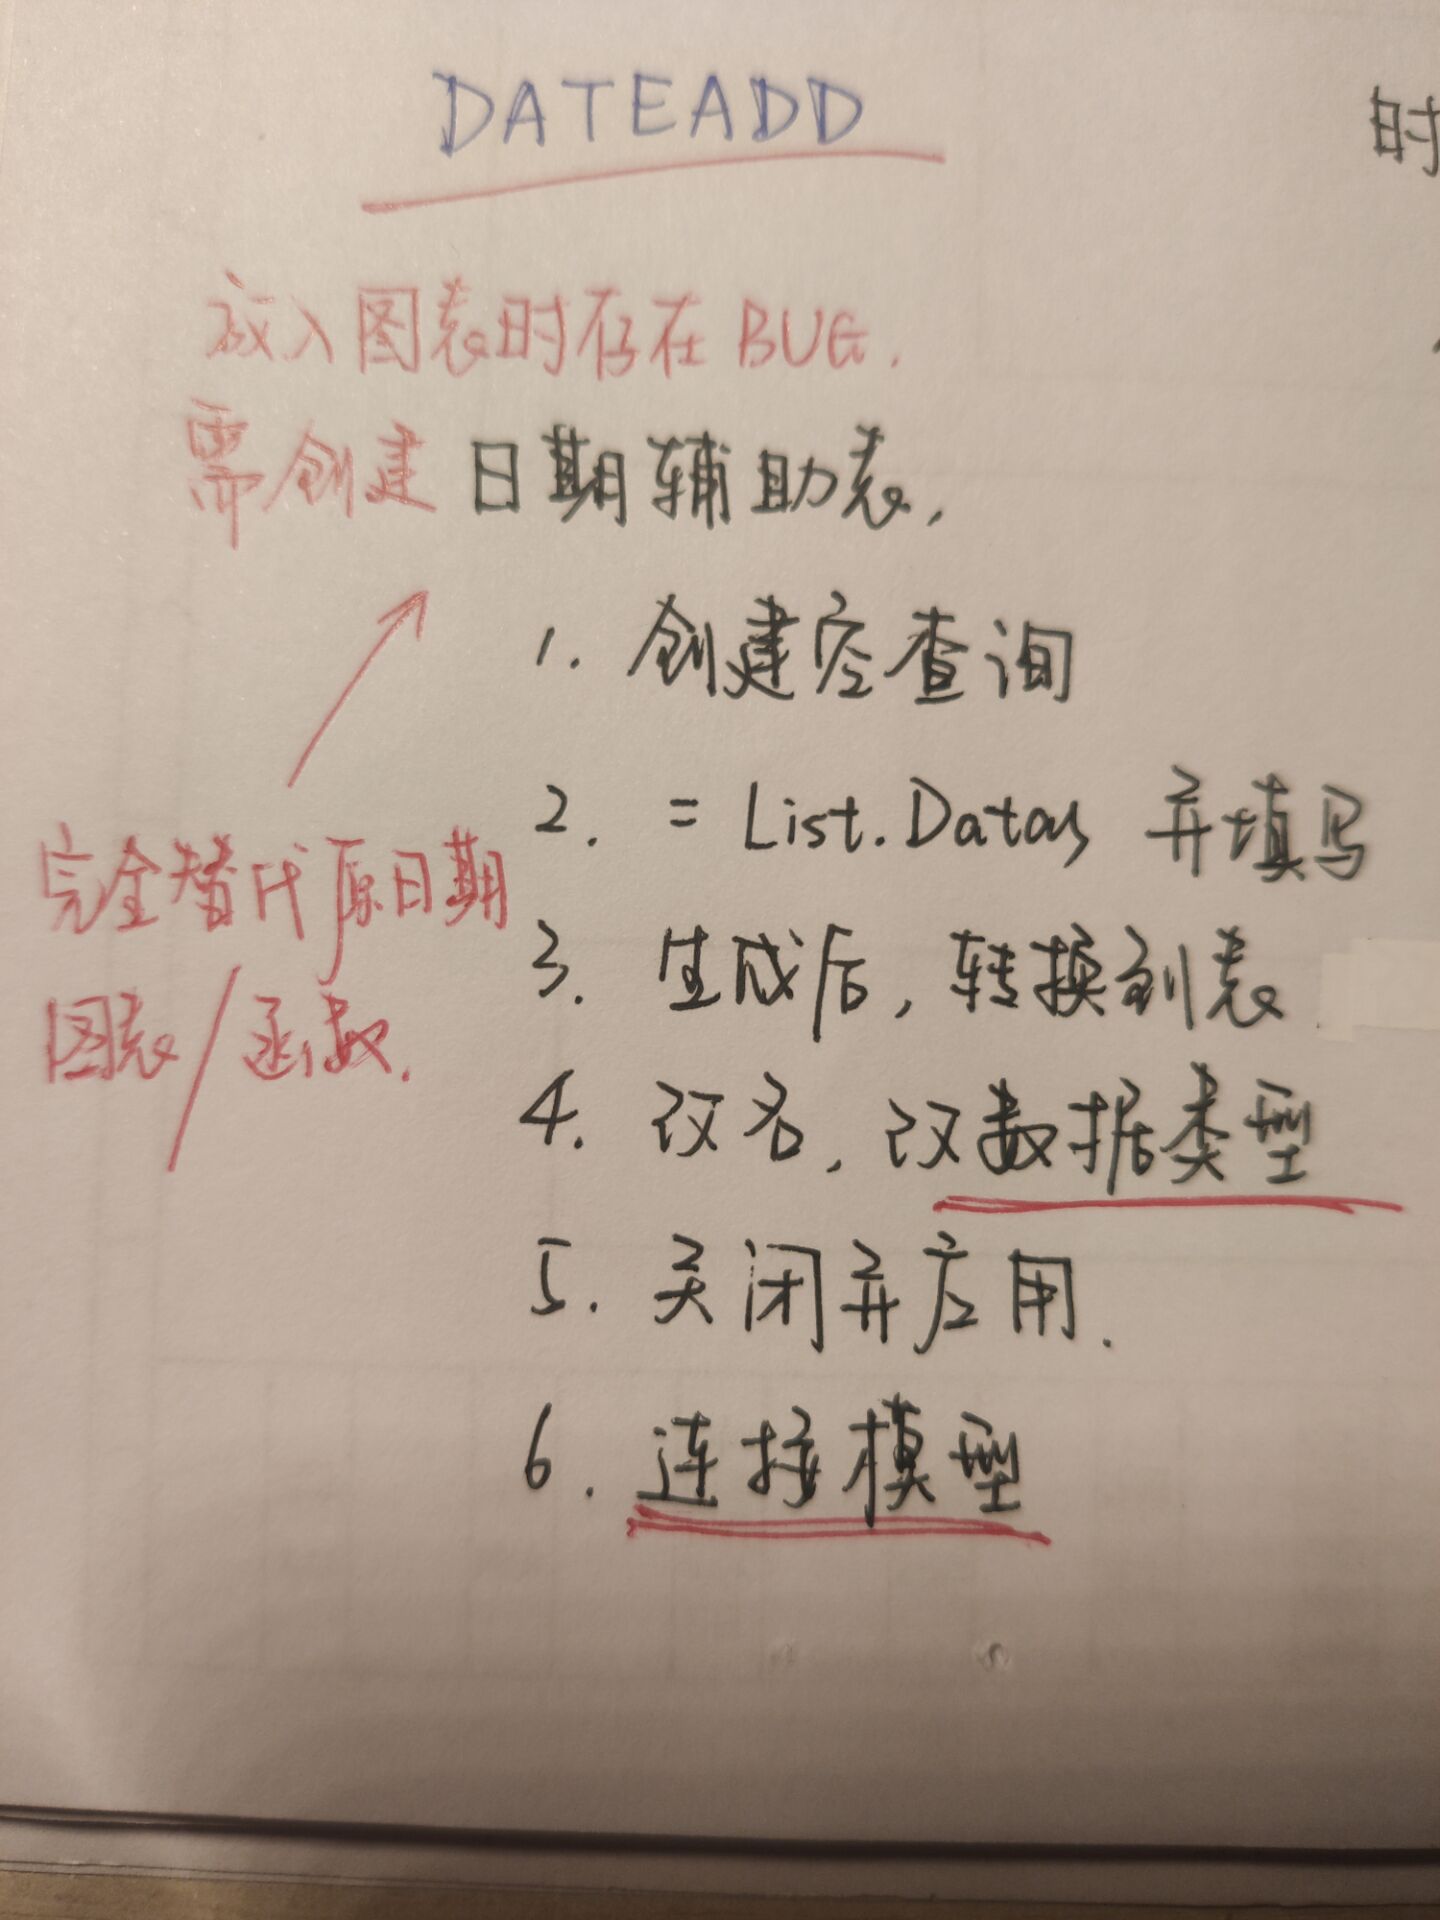 DATEADD
时
放入图表时存在BUG.
需创建日期辅助表,
1. 创建空查询
2. = List.Dates 并填写
完全替代原日期
图表/函数.
3. 生成后, 转换到表
4. 改名, 改数据类型
5. 关闭并应用.
6. 连接模型